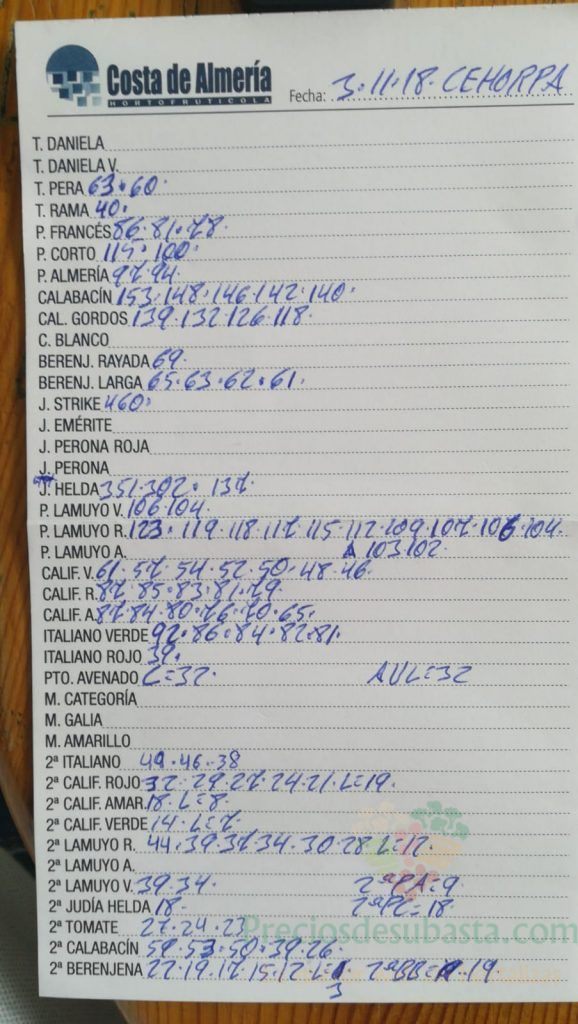 Costa de Almería
HORTOFRUTICOLA
Fecha: 3.11.18. CEHORPA
T. DANIELA
T. DANIELA V.
T. PERA 63.60.
T. RAMA 40.
P. FRANCÉS 86.81.78.
P. CORTO 115.100.
P. ALMERÍA 97.94.
CALABACÍN 153.148.146.142.140.
CAL. GORDOS 139.132.126.118.
C. BLANCO
BERENJ. RAYADA 69.
BERENJ. LARGA 65.63.62.61.
J. STRIKE 460.
J. EMÉRITE
J. PERONA ROJA
J. PERONA
J. HELDA 351.302. 137.
P. LAMUYO V. 106.104.
P. LAMUYO R. 123.119.118.117.115.112.109.107.106.104.
P. LAMUYO A. 103.102
CALIF. V. 61.57.54.52.50.48.46.
CALIF. R. 87.85.83.81.79
CALIF. A. 87.84.80.76.70.65.
ITALIANO VERDE 92.86.84.82.81.
ITALIANO ROJO 39.
PTO. AVENADO L=32. AVL=32
M. CATEGORÍA
M. GALIA
M. AMARILLO
2ª ITALIANO 49.46.38
2ª CALIF. ROJO 32.29.27.24.21.L=19.
2ª CALIF. AMAR. 18.L=8.
2ª CALIF. VERDE 14.L=7.
2ª LAMUYO R. 44.39.37.34.30.28.L=17.
2ª LAMUYO A.
2ª LAMUYO V. 39.34. 2ªPA=9
2ª JUDÍA HELDA 18. 2ªPC=18.
2ª TOMATE 27.24.23
Preciosdesubasta.com
2ª CALABACÍN 59.53.50.39.26.
2ª BERENJENA 22.19.17.15.12.L= 2ªBB= 19
3